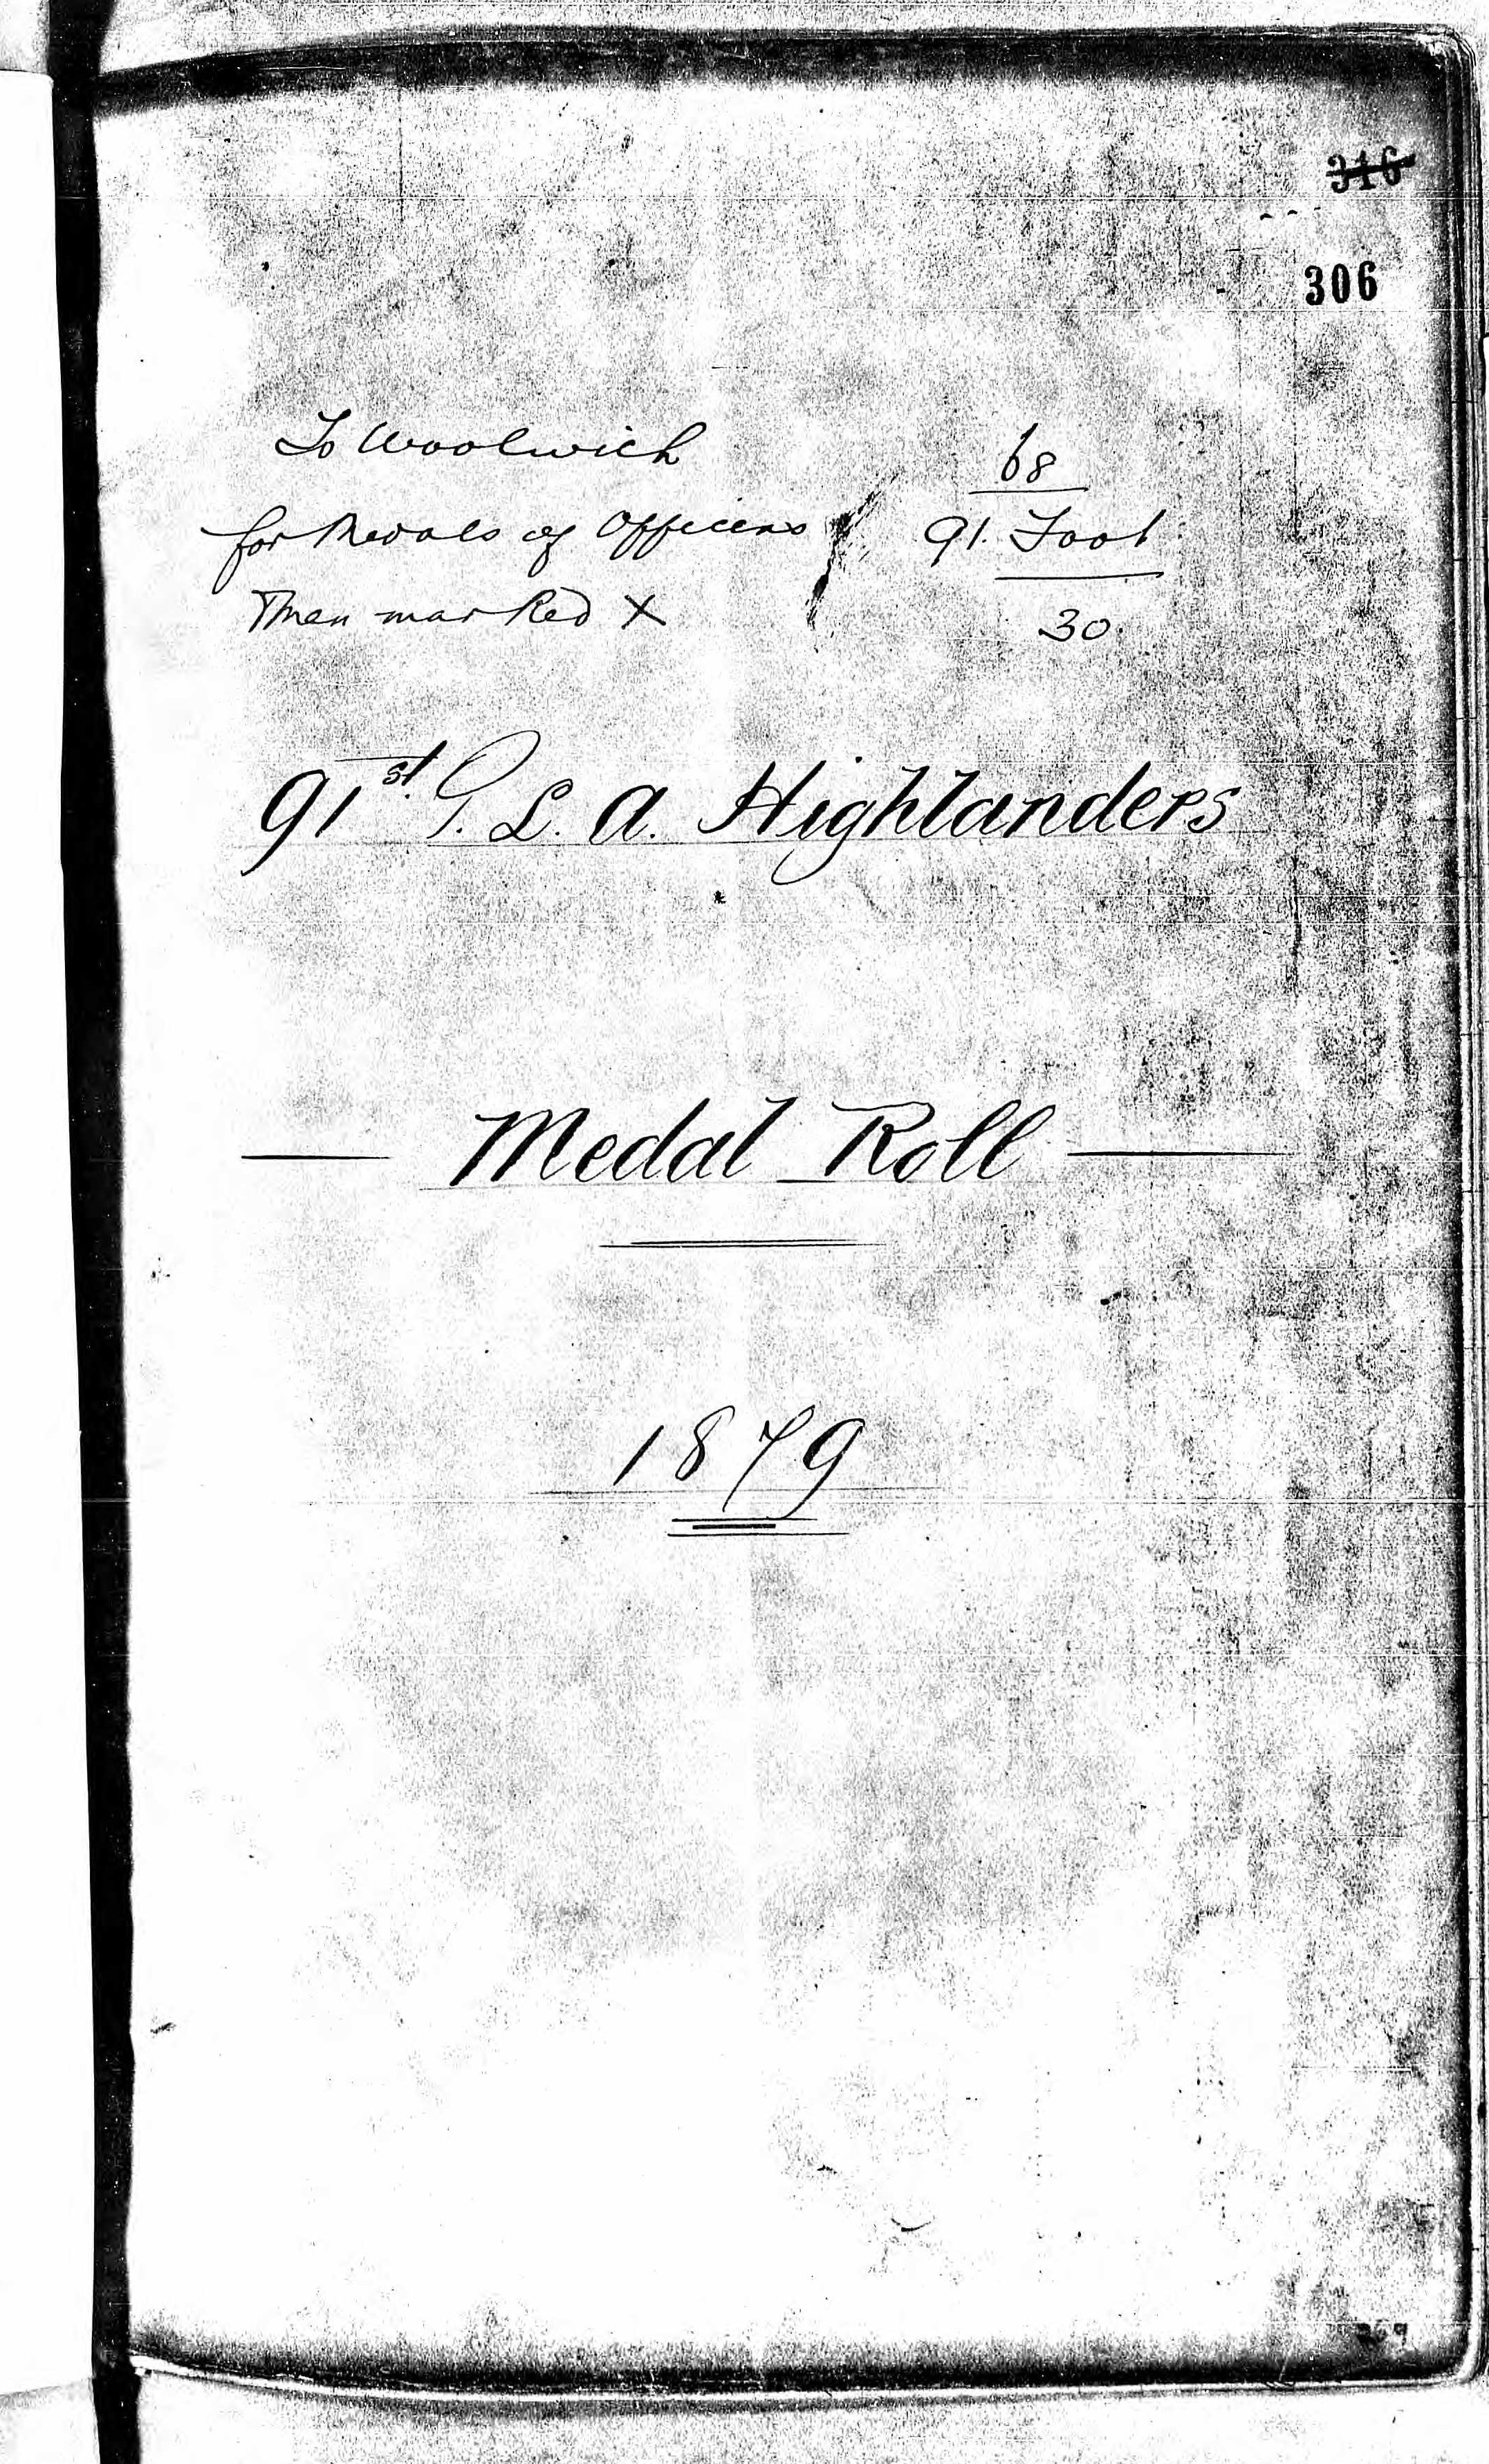 316
306
To Woolwich
for Medals of Officers
Then marked X
68
91. Foot
30.
91st. P. L. A. Highlanders
Medal Roll
1879